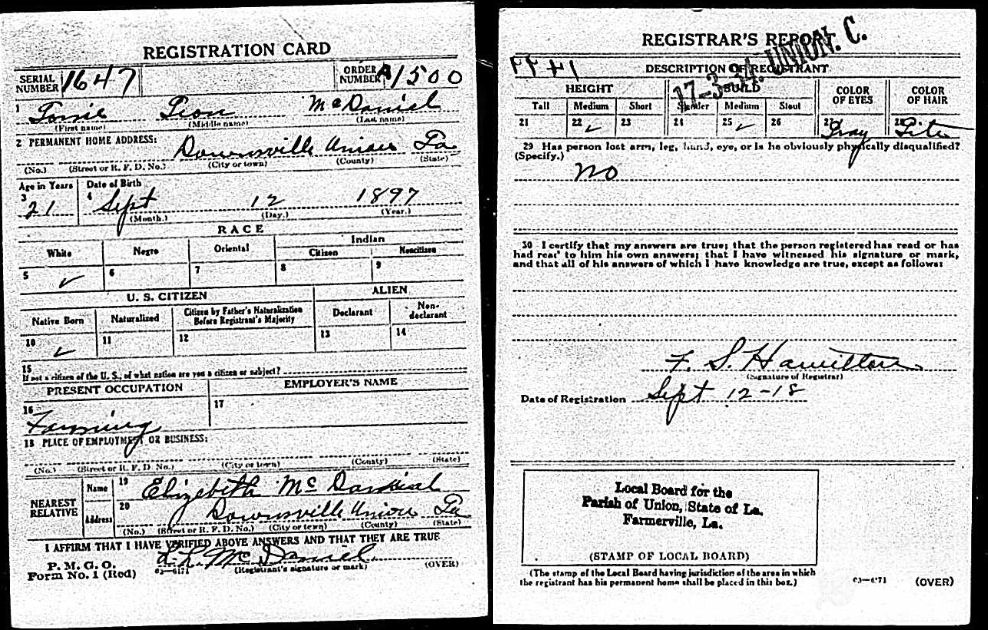 REGISTRATION CARD
SERIAL NUMBER 1647
ORDER NUMBER A1500
1 Leon McDaniel
(First name) (Middle name) (Last name)
2 PERMANENT HOME ADDRESS:
Downsville Union La
(No.) (Street or R. F. D. No.) (City or town) (County) (State)
Age in Years Date of Birth
3 21 4 Sept 12 1897
(Month.) (Day.) (Year.)
RACE
White Negro Oriental Indian
Citizen Noncitizen
5 ✓ 6 7 8 9
U. S. CITIZEN ALIEN
Native Born Naturalized Citizen by Father's Naturalization Before Registrant's Majority Declarant Non-declarant
10 ✓ 11 12 13 14
15
If not a citizen of the U. S., of what nation are you a citizen or subject?
PRESENT OCCUPATION EMPLOYER'S NAME
16 Farming 17
18 PLACE OF EMPLOYMENT OR BUSINESS:
(No.) (Street or R. F. D. No.) (City or town) (County) (State)
NEAREST RELATIVE
Name 19 Elizabeth McDaniel
Address 20 Downsville Union La
(No.) (Street or R. F. D. No.) (City or town) (County) (State)
I AFFIRM THAT I HAVE VERIFIED ABOVE ANSWERS AND THAT THEY ARE TRUE
P. M. G. O.
Form No. 1 (Red) 03—6171 (Registrant's signature or mark) (OVER)
McDaniel
REGISTRAR'S REPORT
17-3-34. UNION. C.
DESCRIPTION OF REGISTRANT
HEIGHT BUILD COLOR OF EYES COLOR OF HAIR
Tall Medium Short Slender Medium Stout
21 22 ✓ 23 24 25 ✓ 26 27 Gray 28
29 Has person lost arm, leg, hand, eye, or is he obviously physically disqualified?
(Specify.)
No
30 I certify that my answers are true; that the person registered has read or has
had read to him his own answers; that I have witnessed his signature or mark,
and that all of his answers of which I have knowledge are true, except as follows:
F. S. Hamilton
(Signature of Registrar)
Date of Registration Sept 12-18
Local Board for the
Parish of Union, State of La.
Farmerville, La.
(STAMP OF LOCAL BOARD)
(The stamp of the Local Board having jurisdiction of the area in which
the registrant has his permanent home shall be placed in this box.)
03—6171 (OVER)